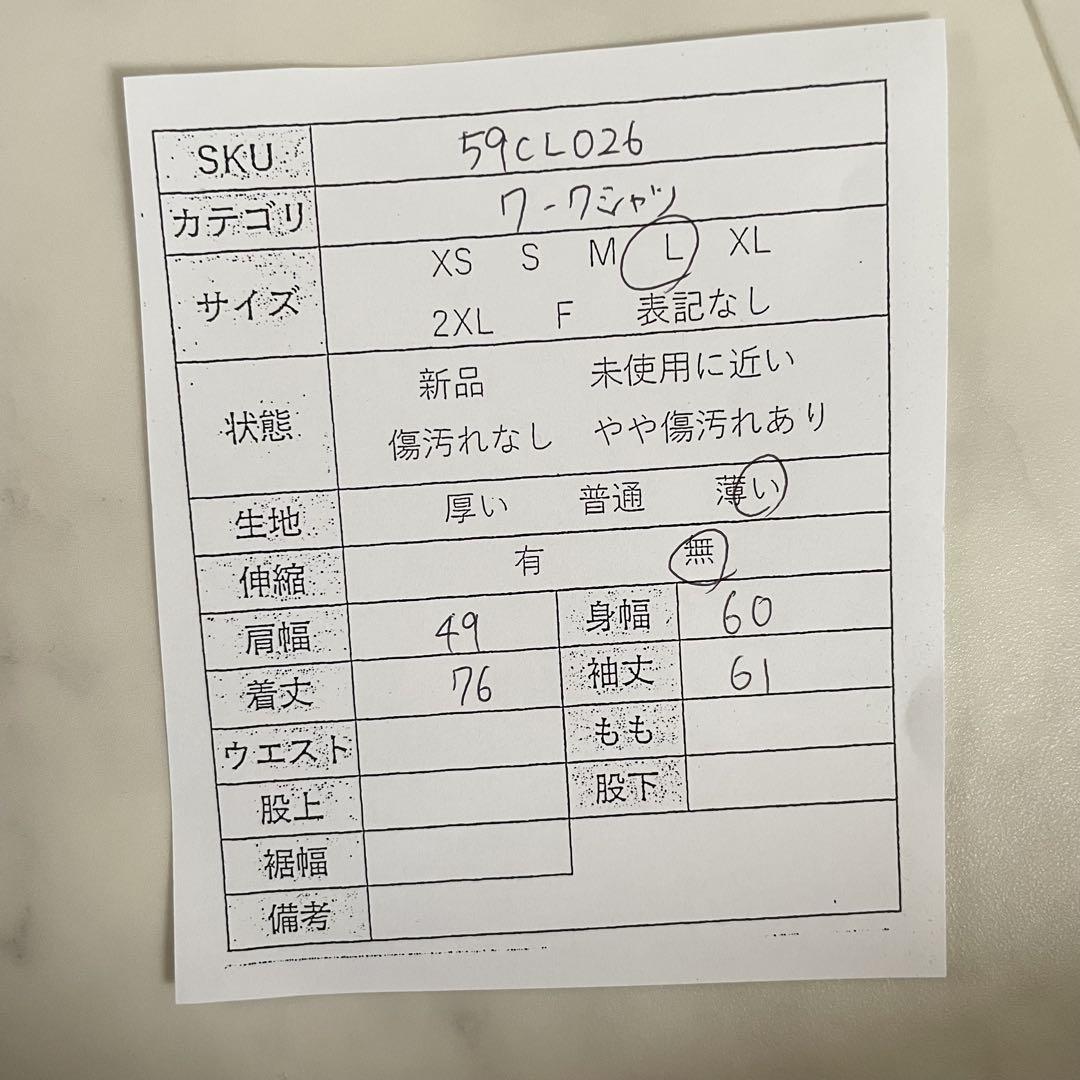 SKU 59CL026
カテゴリ ワークシャツ
サイズ XS S M L XL
2XL F 表記なし
状態 新品 未使用に近い
傷汚れなし やや傷汚れあり
生地 厚い 普通 薄い
伸縮 有 無
肩幅 49 身幅 60
着丈 76 袖丈 61
ウエスト もも
股上 股下
裾幅
備考